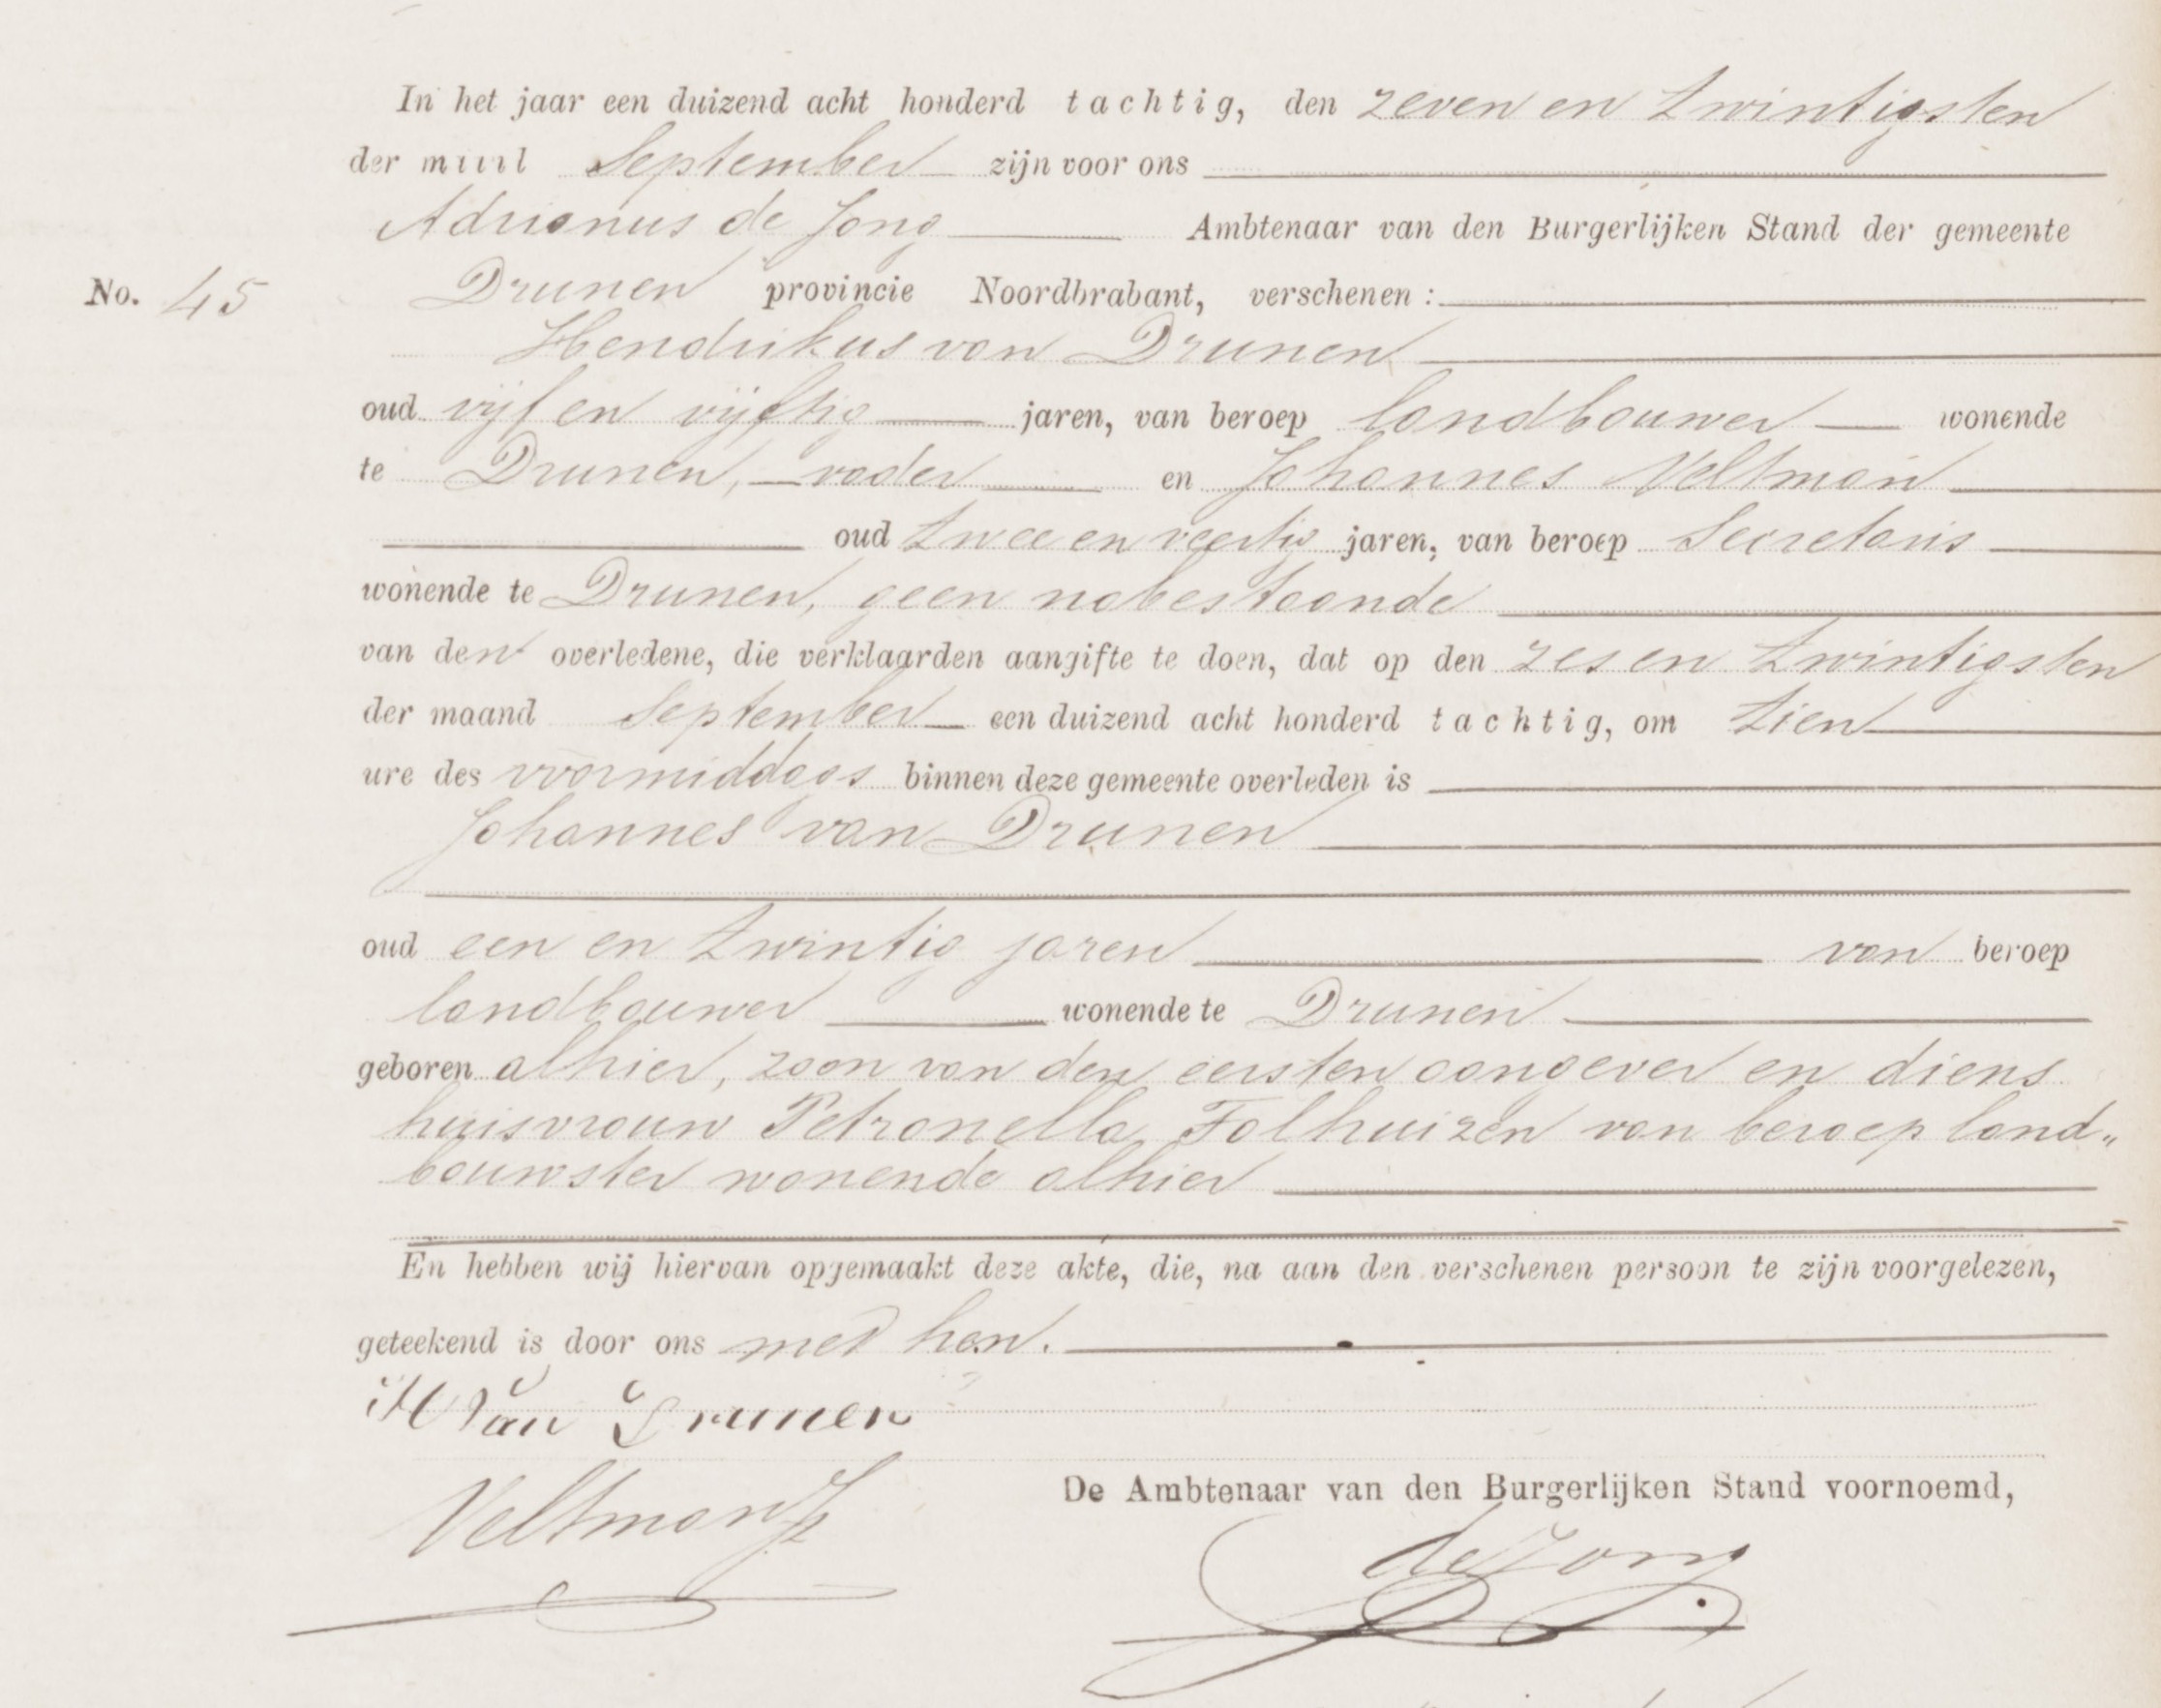 In het jaar een duizend acht honderd tachtig, den zeven en twintigsten
der maand September zijn voor ons
Adrianus de Jong Ambtenaar van den Burgerlijken Stand der gemeente
No. 45 Drunen provincie Noordbrabant, verschenen :
Hendrikus van Drunen
oud vijf en vijftig jaren, van beroep landbouwer wonende
te Drunen, vader en Johannes Veltman
oud twee en veertig jaren, van beroep Secretaris
wonende te Drunen, geen nabestaande
van den overledene, die verklaarden aangifte te doen, dat op den zes en twintigsten
der maand September een duizend acht honderd tachtig, om tien
ure des voormiddags binnen deze gemeente overleden is
Johannes van Drunen
oud een en twintig jaren van beroep
landbouwer wonende te Drunen
geboren alhier, zoon van den eersten aangever en diens
huisvrouw Petronella Folhuizen van beroep land„
bouwster wonende alhier
En hebben wij hiervan opgemaakt deze akte, die, na aan den verschenen persoon te zijn voorgelezen,
geteekend is door ons met hen.
H Van Drunen
Veltman
De Ambtenaar van den Burgerlijken Stand voornoemd,
de Jong